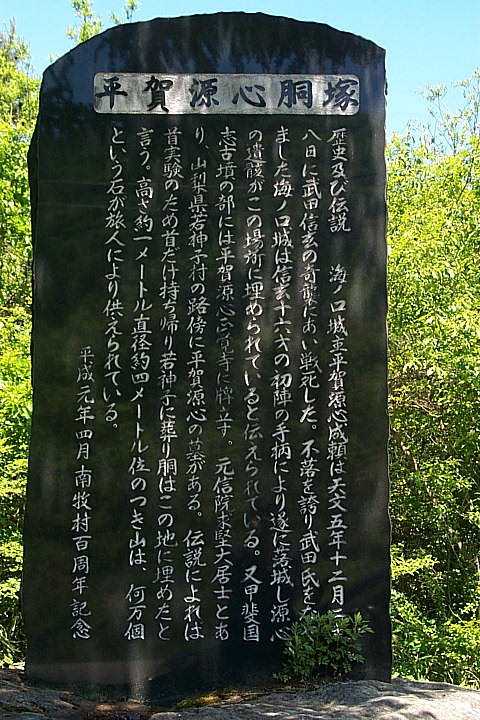 平賀源心胴塚
歴史及び伝説　海ノ口城主平賀源心成頼は天文五年十二月二十
八日に武田信玄の奇襲にあい戦死した。不落を誇り武田氏を
ました海ノ口城は信玄十六才の初陣の手柄により遂に落城し源心
の遺骸がこの場所に埋められていると伝えられている。又甲斐国
志古墳の部には平賀源心正覚寺に牌立す。元信院未堅大居士とあ
り、山梨県若神子村の路傍に平賀源心の墓がある。伝説によれば
首実験のため首だけ持ち帰り若神子に葬り胴はこの地に埋めたと
言う。高さ約一メートル直径約四メートル位のつき山は、何万個
という石が旅人により供えられている。
平成元年四月南牧村百周年記念